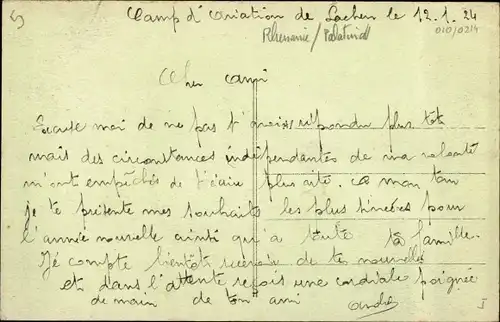 Camp d'aviation de Lachen le 12.1.24
Rhenanie / Palatinat
010/0214
Cher ami
Excuse moi de ne pas t'avoir répondu plus tôt
mais des circonstances indépendantes de ma volonté
m'ont empêchés de t'écrire plus vite. a mon tour
je te présente mes souhaits les plus sincères pour
l'année nouvelle ainsi qu'a toute ta famille.
Jé compte bientôt recevoir de tes nouvelles
et dans l'attente reçois une cordiale poignée
de main de ton ami André